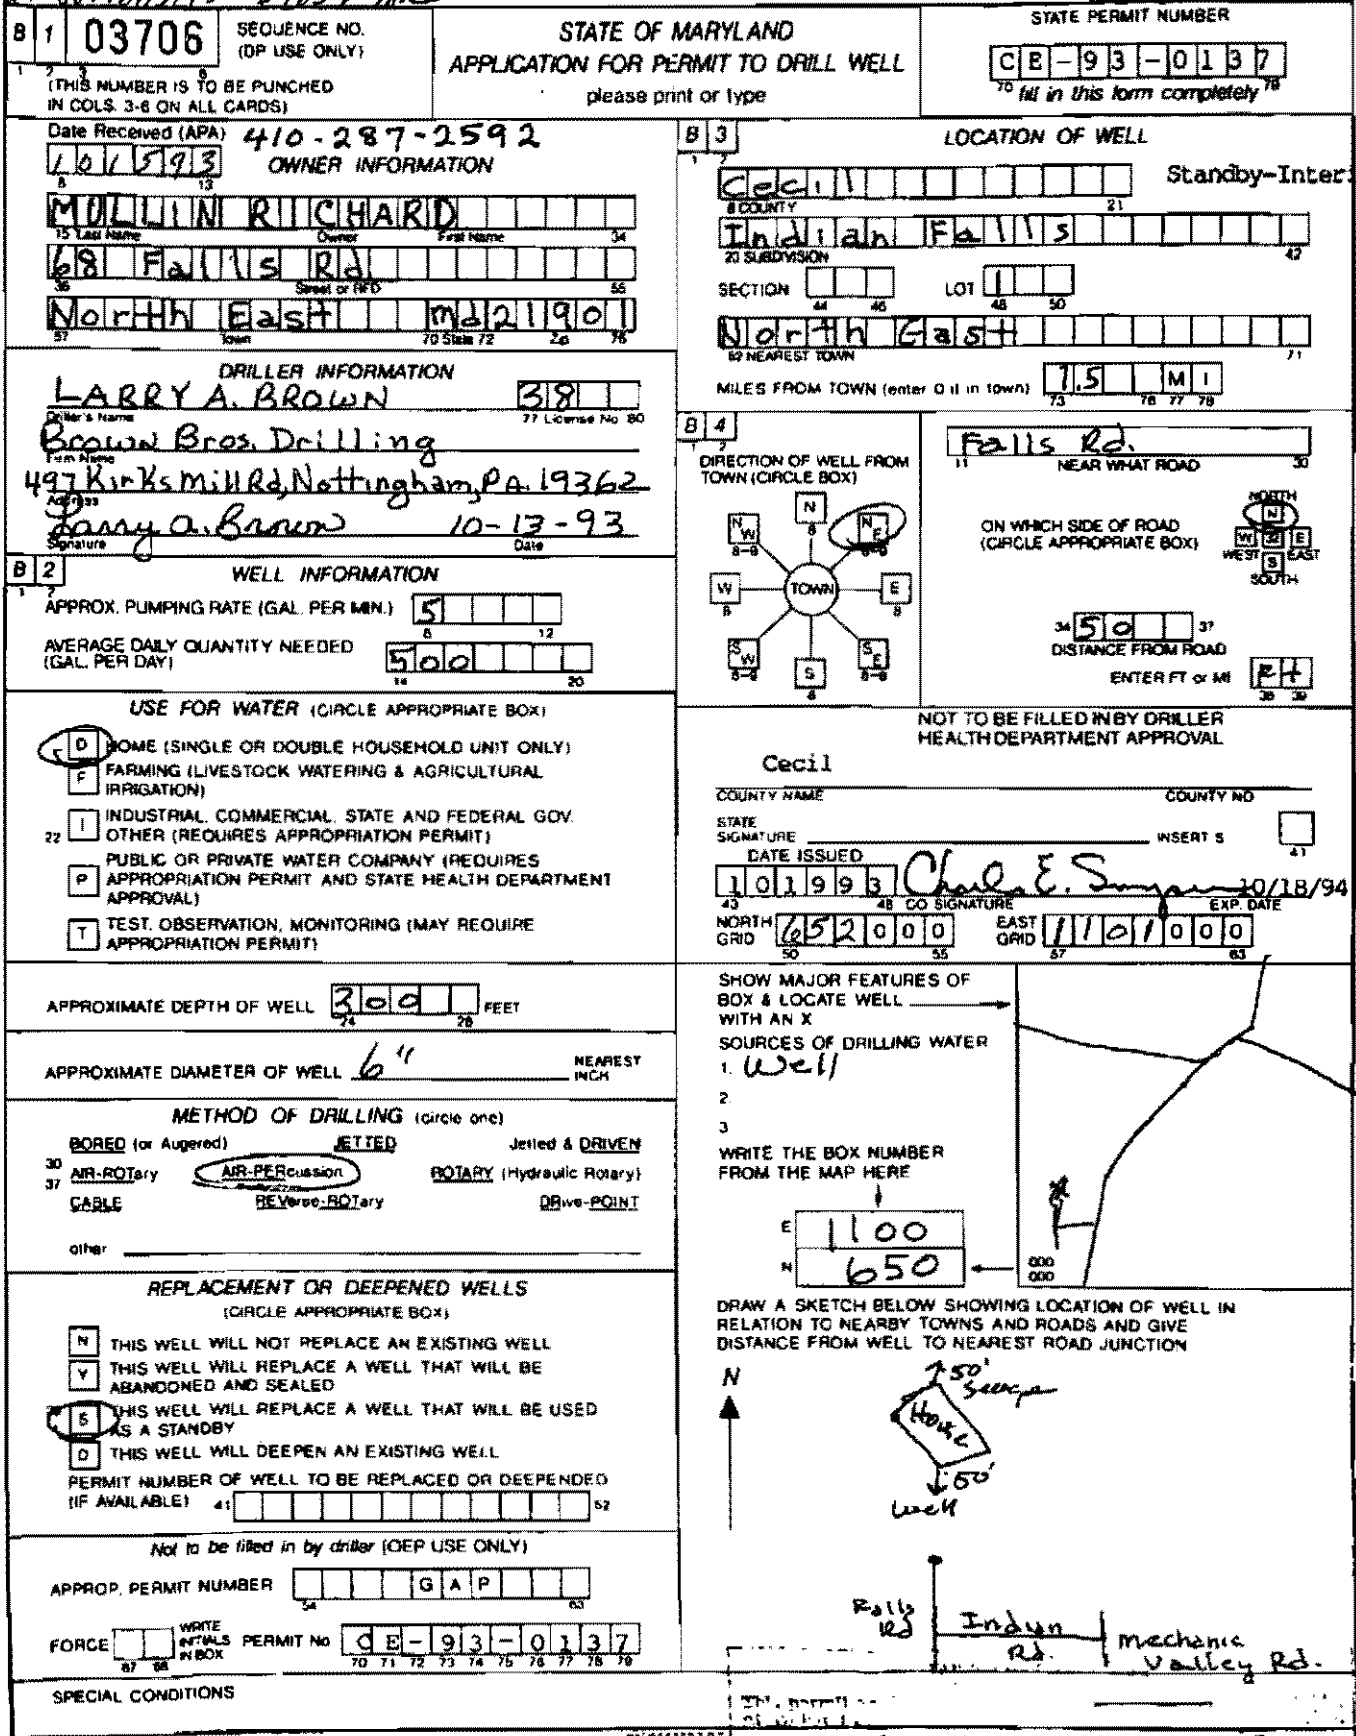 B 1 03706 SEQUENCE NO. (DP USE ONLY)
1 2 3 6
(THIS NUMBER IS TO BE PUNCHED
IN COLS. 3-6 ON ALL CARDS)
STATE OF MARYLAND
APPLICATION FOR PERMIT TO DRILL WELL
please print or type
STATE PERMIT NUMBER
CE-93-0137
70 fill in this form completely 79
Date Received (APA) 410-287-2592
101593
8 13
OWNER INFORMATION
MULLIN RICHARD
15 Last Name Owner First Name 34
68 Falls Rd
36 Street or RFD 55
North East md 21901
57 Town 70 State 72 Zip 76
DRILLER INFORMATION
LARRY A. BROWN 38
Driller's Name 77 License No 80
Brown Bros. Drilling
Firm Name
497 Kirks Mill Rd, Nottingham, PA. 19362
Address
Larry A. Brown 10-13-93
Signature Date
B 2 WELL INFORMATION
1 2
APPROX. PUMPING RATE (GAL. PER MIN.) 5
8 12
AVERAGE DAILY QUANTITY NEEDED
(GAL. PER DAY) 500
14 20
USE FOR WATER (CIRCLE APPROPRIATE BOX)
D HOME (SINGLE OR DOUBLE HOUSEHOLD UNIT ONLY)
F FARMING (LIVESTOCK WATERING & AGRICULTURAL
IRRIGATION)
22 I INDUSTRIAL, COMMERCIAL, STATE AND FEDERAL GOV.
OTHER (REQUIRES APPROPRIATION PERMIT)
P PUBLIC OR PRIVATE WATER COMPANY (REQUIRES
APPROPRIATION PERMIT AND STATE HEALTH DEPARTMENT
APPROVAL)
T TEST, OBSERVATION, MONITORING (MAY REQUIRE
APPROPRIATION PERMIT)
APPROXIMATE DEPTH OF WELL 300 FEET
24 28
APPROXIMATE DIAMETER OF WELL 6" NEAREST
INCH
METHOD OF DRILLING (circle one)
BORED (or Augered) JETTED Jetted & DRIVEN
30 AIR-ROTary AIR-PERcussion ROTARY (Hydraulic Rotary)
37 CABLE REVerse-ROTary DRive-POINT
other
REPLACEMENT OR DEEPENED WELLS
(CIRCLE APPROPRIATE BOX)
N THIS WELL WILL NOT REPLACE AN EXISTING WELL
Y THIS WELL WILL REPLACE A WELL THAT WILL BE
ABANDONED AND SEALED
S THIS WELL WILL REPLACE A WELL THAT WILL BE USED
AS A STANDBY
D THIS WELL WILL DEEPEN AN EXISTING WELL
PERMIT NUMBER OF WELL TO BE REPLACED OR DEEPENED
(IF AVAILABLE) 41 52
Not to be filled in by driller (OEP USE ONLY)
APPROP. PERMIT NUMBER GAP
54 63
FORCE WRITE INITIALS IN BOX PERMIT No CE-93-0137
67 68 70 71 72 73 74 75 76 77 78 79
SPECIAL CONDITIONS
B 3 LOCATION OF WELL
1 2
Cecil Standby-Inter
8 COUNTY 21
Indian Falls
23 SUBDIVISION 42
SECTION LOT 1
44 46 48 50
North East
52 NEAREST TOWN 71
MILES FROM TOWN (enter 0 if in town) 1.5 MI
73 76 77 78
B 4
1 2
DIRECTION OF WELL FROM
TOWN (CIRCLE BOX)
N
8
NW NE
8-9 8-9
W TOWN E
8 8
SW SE
8-9 8-9
S
8
Falls Rd.
11 NEAR WHAT ROAD 30
ON WHICH SIDE OF ROAD
(CIRCLE APPROPRIATE BOX)
NORTH
N
W 32 E
WEST S EAST
SOUTH
34 50 37
DISTANCE FROM ROAD
ENTER FT or MI Ft
38 39
NOT TO BE FILLED IN BY DRILLER
HEALTH DEPARTMENT APPROVAL
Cecil
COUNTY NAME COUNTY NO
STATE
SIGNATURE INSERT S
41
DATE ISSUED
101993 Charles E. 10/18/94
43 48 CO SIGNATURE EXP. DATE
NORTH GRID 652000 EAST GRID 1101000
50 55 57 63
SHOW MAJOR FEATURES OF
BOX & LOCATE WELL
WITH AN X
SOURCES OF DRILLING WATER
1. Well
2.
3
WRITE THE BOX NUMBER
FROM THE MAP HERE
E 1100
N 650
000
000
DRAW A SKETCH BELOW SHOWING LOCATION OF WELL IN
RELATION TO NEARBY TOWNS AND ROADS AND GIVE
DISTANCE FROM WELL TO NEAREST ROAD JUNCTION
N
50'
House
50'
well
Falls
Rd
Indian
Rd.
Mechanic
Valley Rd.